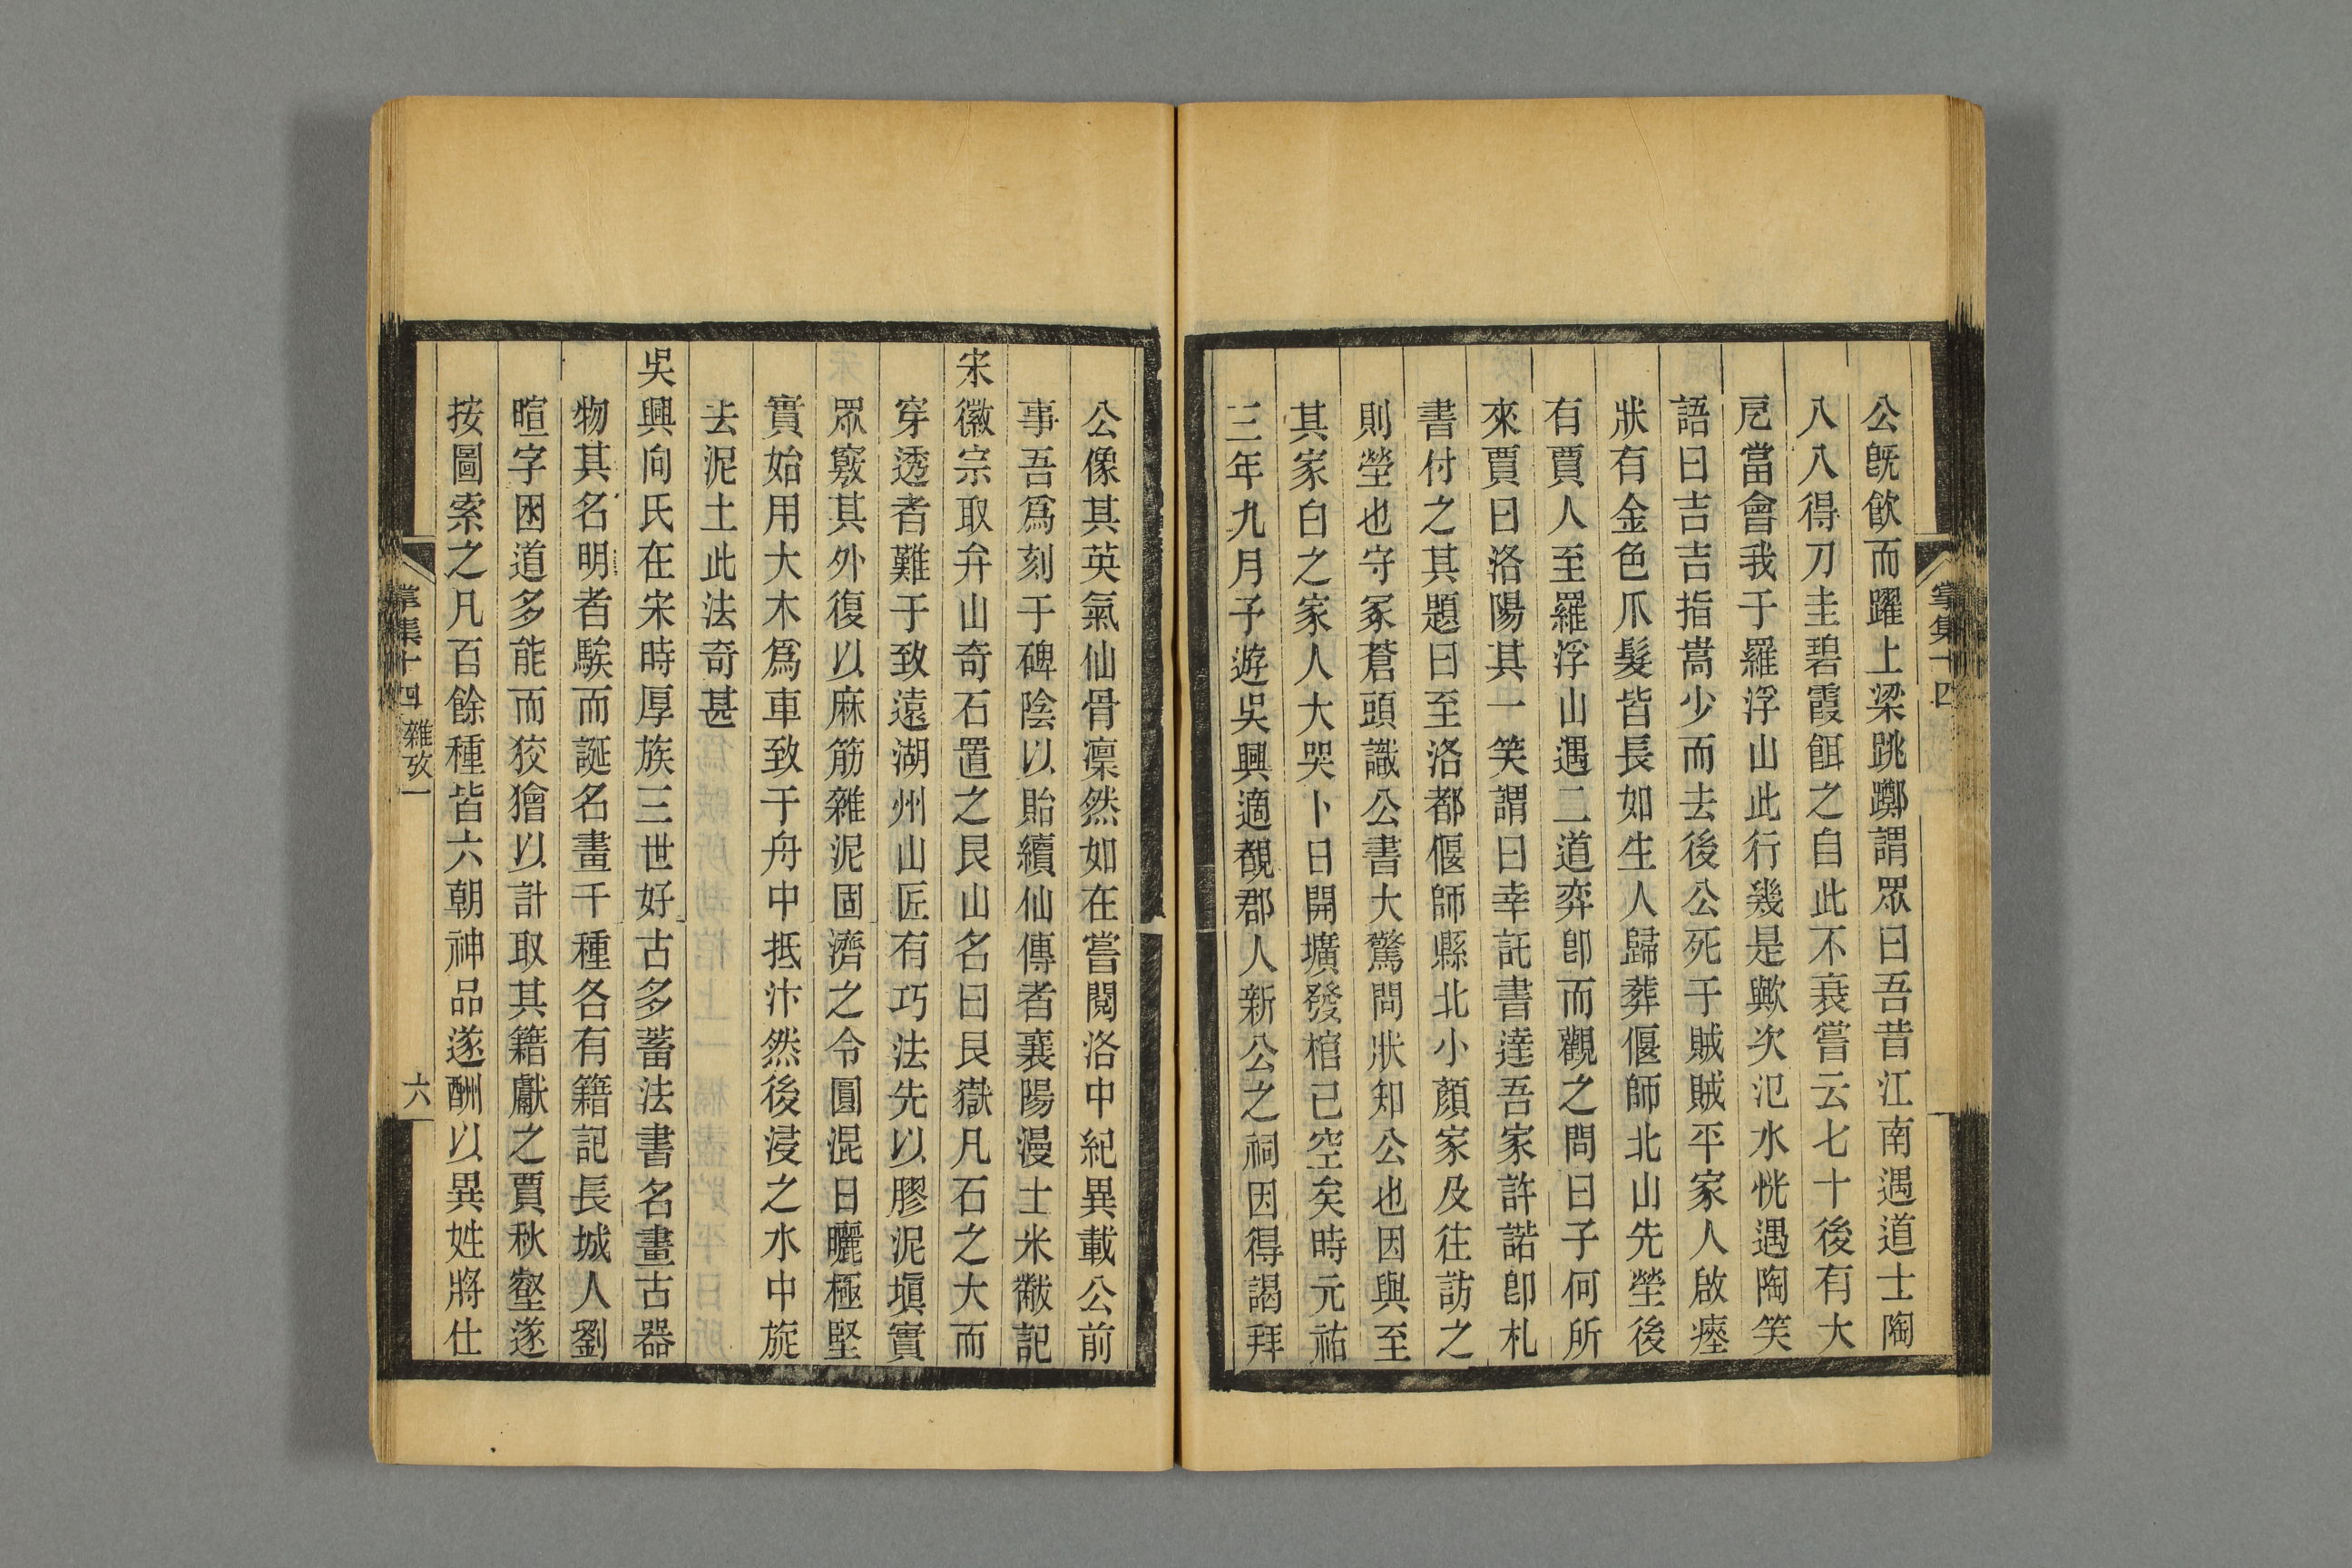 公旣飲而躍上梁跳躑謂眾曰吾昔江南遇道士陶
八八得刀圭碧霞餌之自此不衰嘗云七十後有大
戹當會我于羅浮山此行幾是歟次氾水恍遇陶笑
語曰吉吉指嵩少而去後公死于賊賊平家人啟瘞
狀有金色爪髮皆長如生人歸葬偃師北山先塋後
有賈人至羅浮山遇二道弈卽而觀之問曰子何所
來賈曰洛陽其一笑謂曰幸託書達吾家許諾卽札
書付之其題曰至洛都偃師縣北小顏家及往訪之
則塋也守冢蒼頭識公書大驚問狀知公也因與至
其家白之家人大哭卜日開壙發棺已空矣時元祐
三年九月予遊吳興適覩郡人新公之祠因得謁拜
公像其英氣仙骨凛然如在嘗閱洛中紀異載公前
事吾爲刻于碑陰以貽續仙傳者襄陽漫士米黻記
宋徽宗取弁山奇石置之艮山名曰艮嶽凡石之大而
穿透者難于致遠湖州山匠有巧法先以膠泥塡實
眾竅其外復以麻筋雜泥固濟之令圓混日曬極堅
實始用大木爲車致于舟中抵汴然後浸之水中旋
去泥土此法奇甚
吳興向氏在宋時厚族三世好古多蓄法書名畫古器
物其名明者騃而誕名畫千種各有籍記長城人劉
暄字困道多能而狡獪以計取其籍獻之賈秋壑遂
按圖索之凡百餘種皆六朝神品遂酬以異姓將仕
掌集十四
掌集十四 雜攷一
六